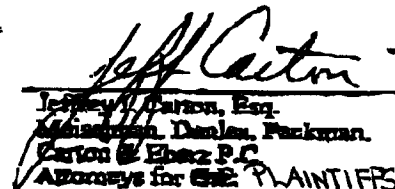 Jeff Carton
Jeffrey I. Carton, Esq.
Meiselman, Denlea, Packman,
Carton & Eberz P.C.
Attorneys for PLAINTIFFS